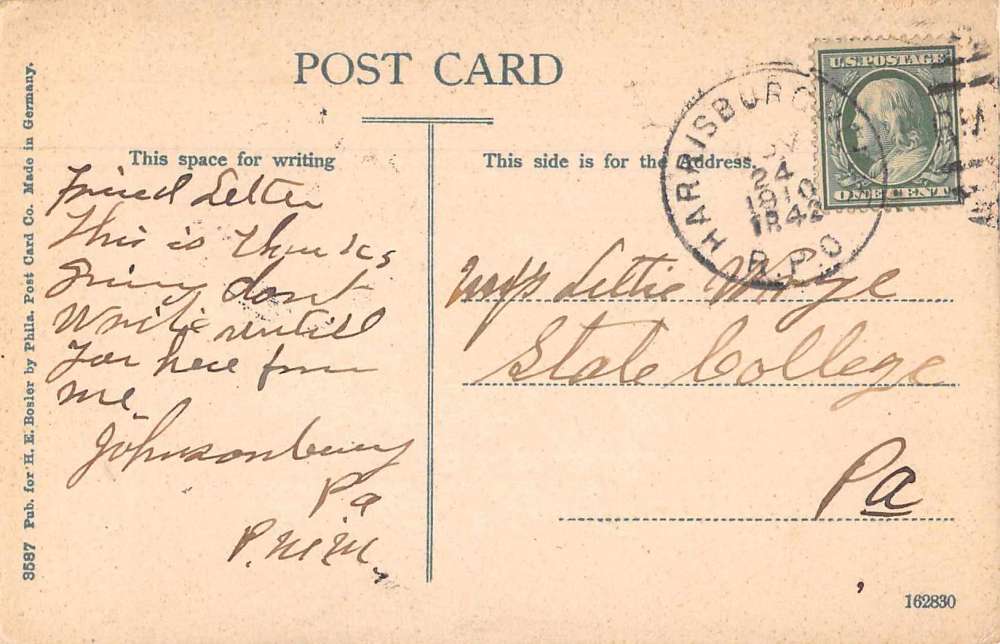 POST CARD
This space for writing
This side is for the address.
U.S. POSTAGE
ONE CENT
HARRISBURG
24
1910
R.P.O
Friend Lettie
This is thanks,
giving dont
write untill
you here from
me
Johnsonburg
Pa
Lettie
State College
Pa
3587 Pub. for H. E. Bosler by Phila. Post Card Co. Made in Germany.
162830